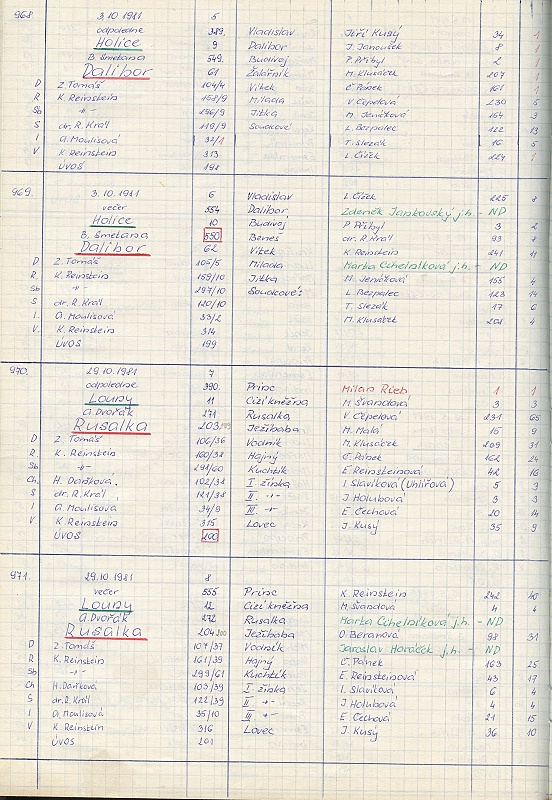 968 3.10.1981 5 Vladislav Jiří Kusý 34 1
odpoledne 389. Dalibor J. Janoušek 8 1
Holice 9 Budivoj P. Přibyl 2 1
B. Smetana 549. Žalářník M. Klusáček 207 1
Dalibor 61 Vítek Č. Pánek 161 1
D Z. Tomáš 104/4 Milada V. Čepelová 230 5
R K. Reinstein 158/9 Jitka M. Jeníčková 154 3
Sb -"- 296/9 Soudcové L. Bezpalec 122 13
S dr. R. Král 119/9 T. Slezák 16 5
I A. Moulisová 32/1 L. Čížek 224 7
V K. Reinstein 313
ÚVOS 198
969. 3.10.1981 6 Vladislav L. Čížek 225 8
večer 554 Dalibor Zdeněk Jankovský j.h. - ND
Holice 10 Budivoj P. Přibyl 3 2
B. Smetana 550 Beneš dr. R. Král 93 8
Dalibor 62 Vítek K. Reinstein 241 11
D Z. Tomáš 105/5 Milada Marta Cihelníková j.h. - ND
R. K. Reinstein 159/10 Jitka M. Jeníčková 155 4
Sb -"- 297/10 Soudcové: L. Bezpalec 123 14
S dr. R. Král 120/10 T. Slezák 17 6
I. A. Moulisová 33/2 M. Klusáček 208 4
V. K. Reinstein 314
ÚVOS 199
970. 29.10.1981 7 Princ Milan Řieb 1 1
odpoledne 390. Cizí kněžna M. Švandová 3 3
Louny 11 Rusalka V. Čepelová 231 65
A. Dvořák 271 Ježibaba M. Malá 15 9
Rusalka 203 Vodník M. Klusáček 209 31
D Z. Tomáš 106/36 Hajný Č. Pánek 162 24
R K. Reinstein 160/38 Kuchtík E. Reinsteinová 42 16
Sb -"- 298/60 I. žínka I. Slavíková (Uhlířová) 5 3
Ch. H. Daňková 102/38 II. -"- J. Holubová 3 3
S dr. R. Král 121/38 III. -"- E. Čechová 20 14
I A. Moulisová 34/9 Lovec J. Kusý 35 9
V K. Reinstein 315
ÚVOS 200
971. 29.10.1981 8 Princ K. Reinstein 242 40
večer 555 Cizí kněžna M. Švandová 4 4
Louny 12 Rusalka Marta Cihelníková j.h. - ND
A. Dvořák 272 Ježibaba O. Beranová 98 31
Rusalka 204 200 Vodník Jaroslav Horáček j.h. - ND
D Z. Tomáš 107/37 Hajný Č. Pánek 163 25
R K. Reinstein 161/39 Kuchtík E. Reinsteinová 43 17
Sb -"- 299/61 I. žínka I. Slavíková 6 4
Ch H. Daňková 103/39 II -"- J. Holubová 4 4
S dr. R. Král 122/39 III -"- E. Čechová 21 15
I A. Moulisová 35/10 Lovec J. Kusý 36 10
V K. Reinstein 316
ÚVOS 201